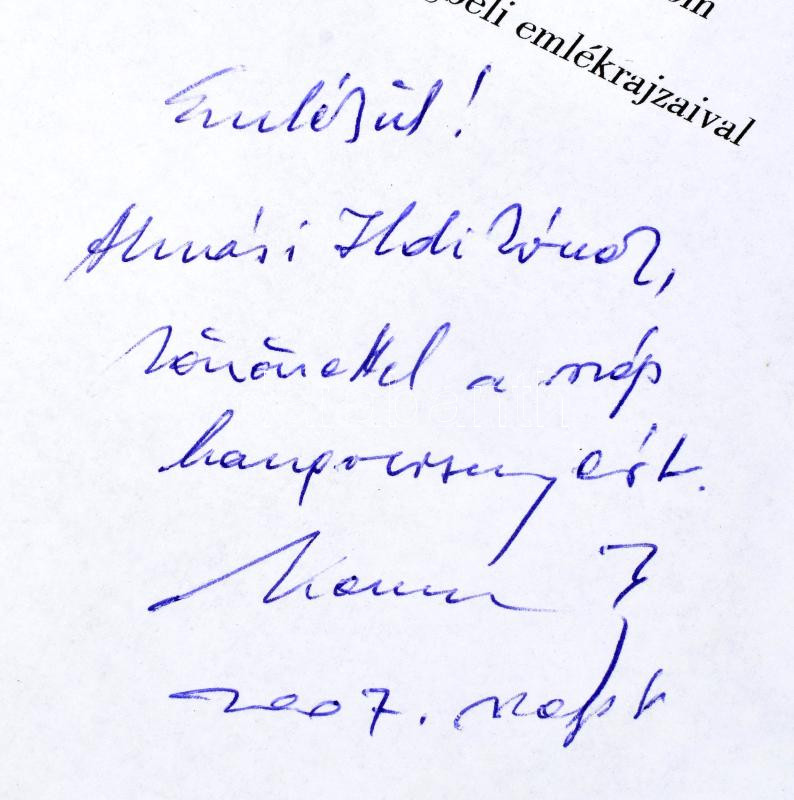 emlékrajzaival
Emlékül!
Almási Ildikónak,
köszönettel a szép
hangversenyért.
2007. szept